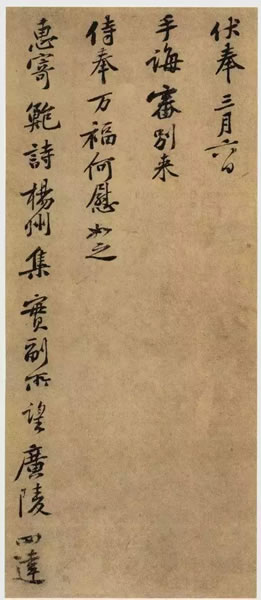 伏奉三月六日
手誨審别来
侍奉万福何慰如之
惠寄鲍詩楊州集實副所望廣陵四達